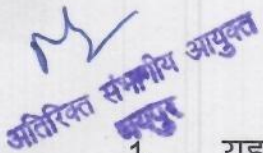 अतिरिक्त संभागीय आयुक्त
जयपुर
1. यह